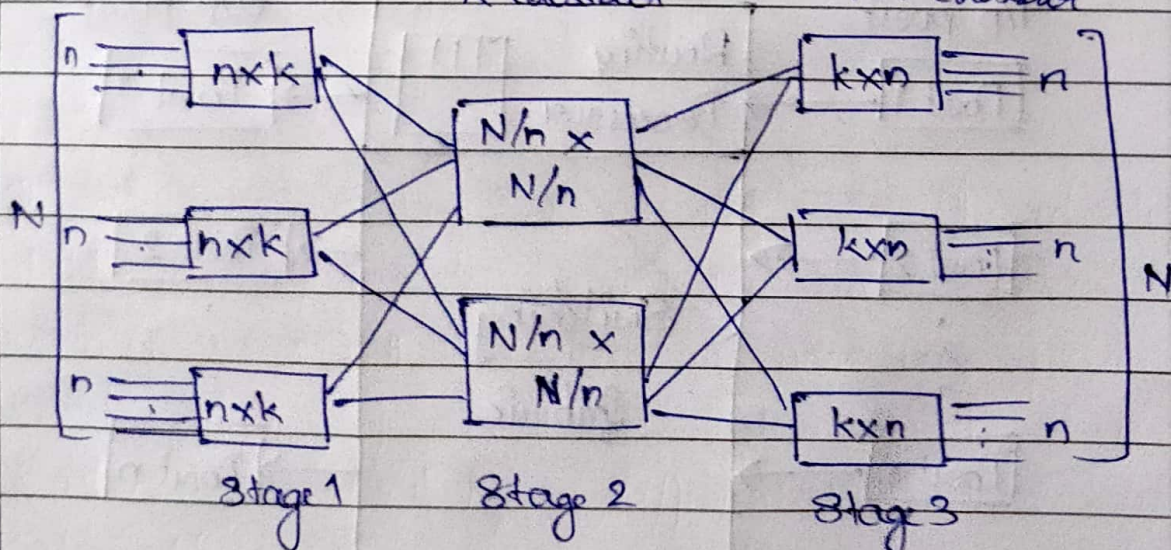 n
n×k
k×n
n
N/n ×
N/n
N
n
n×k
k×n
n
N
N/n ×
N/n
n
n×k
k×n
n
Stage 1
Stage 2
Stage 3